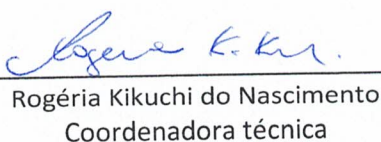 Rogéria K. Ku.
Rogéria Kikuchi do Nascimento
Coordenadora técnica